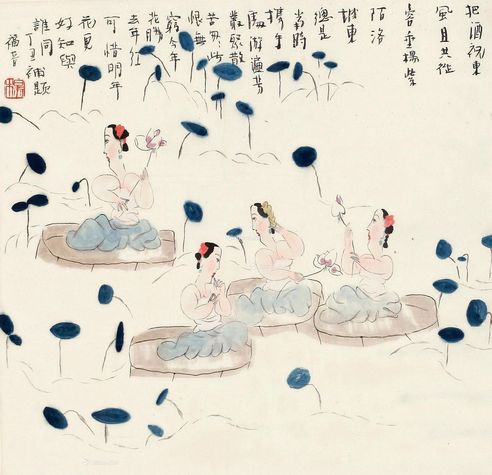 把酒祝東
風且共從
容垂楊紫
陌洛
城東
總是
當時
攜手
處游遍芳
叢聚散
苦匆匆此
恨無
窮今年
花勝
去年紅
可惜明年
花更
好知與
誰同